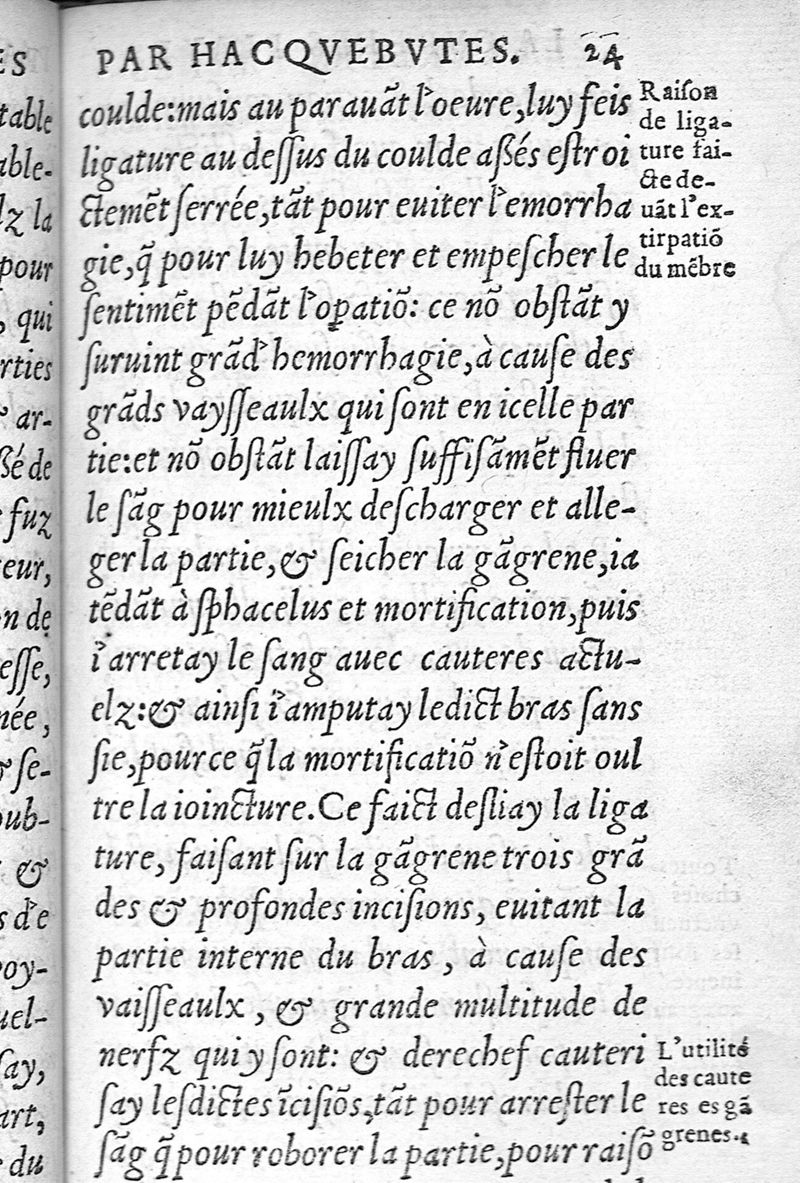 PAR HACQVEBVTES. 24
coulde:mais au parauãt l'oeure,luy feis
ligature au deſſus du coulde aßés eſtroi
ctemẽt ſerrée,tãt pour euiter l'emorrha
gie,q̃ pour luy hebeter et empeſcher le
ſentimẽt pẽdãt l'opatiõ: ce nõ obſtãt y
ſuruint grãd' hemorrhagie,à cauſe des
grãds vayſſeaulx qui ſont en icelle par
tie:et nõ obſtãt laiſſay ſuffiſãmẽt fluer
le ſãg pour mieulx deſcharger et alle-
ger la partie,& ſeicher la gãgrene,ia
tẽdãt à ſphacelus et mortification,puis
i'arretay le ſang auec cauteres actu-
elz:& ainſi i'amputay ledict bras ſans
ſie,pource q̃ la mortificatiõ n'eſtoit oul
tre la ioincture.Ce faict deſliay la liga
ture, faiſant ſur la gãgrene trois grã
des & profondes inciſions, euitant la
partie interne du bras , à cauſe des
vaiſſeaulx , & grande multitude de
nerfz qui y ſont: & derechef cauteri
ſay leſdictes ĩciſiõs,tãt pour arreſter le
ſãg q̃ pour roborer la partie,pour raiſõ
Raiſon
de liga-
ture fai-
cte de-
uãt l'ex-
tirpatiõ
du mẽbre
L'utilité
des caute
res es gã
grenes.
table
able-
lz la
pour
, qui
rties
ar-
ßé de
fuz
eur,
n de
eſſe,
née,
ſe-
oub-
&
s d'e
oy-
uel-
ſay,
art,
du